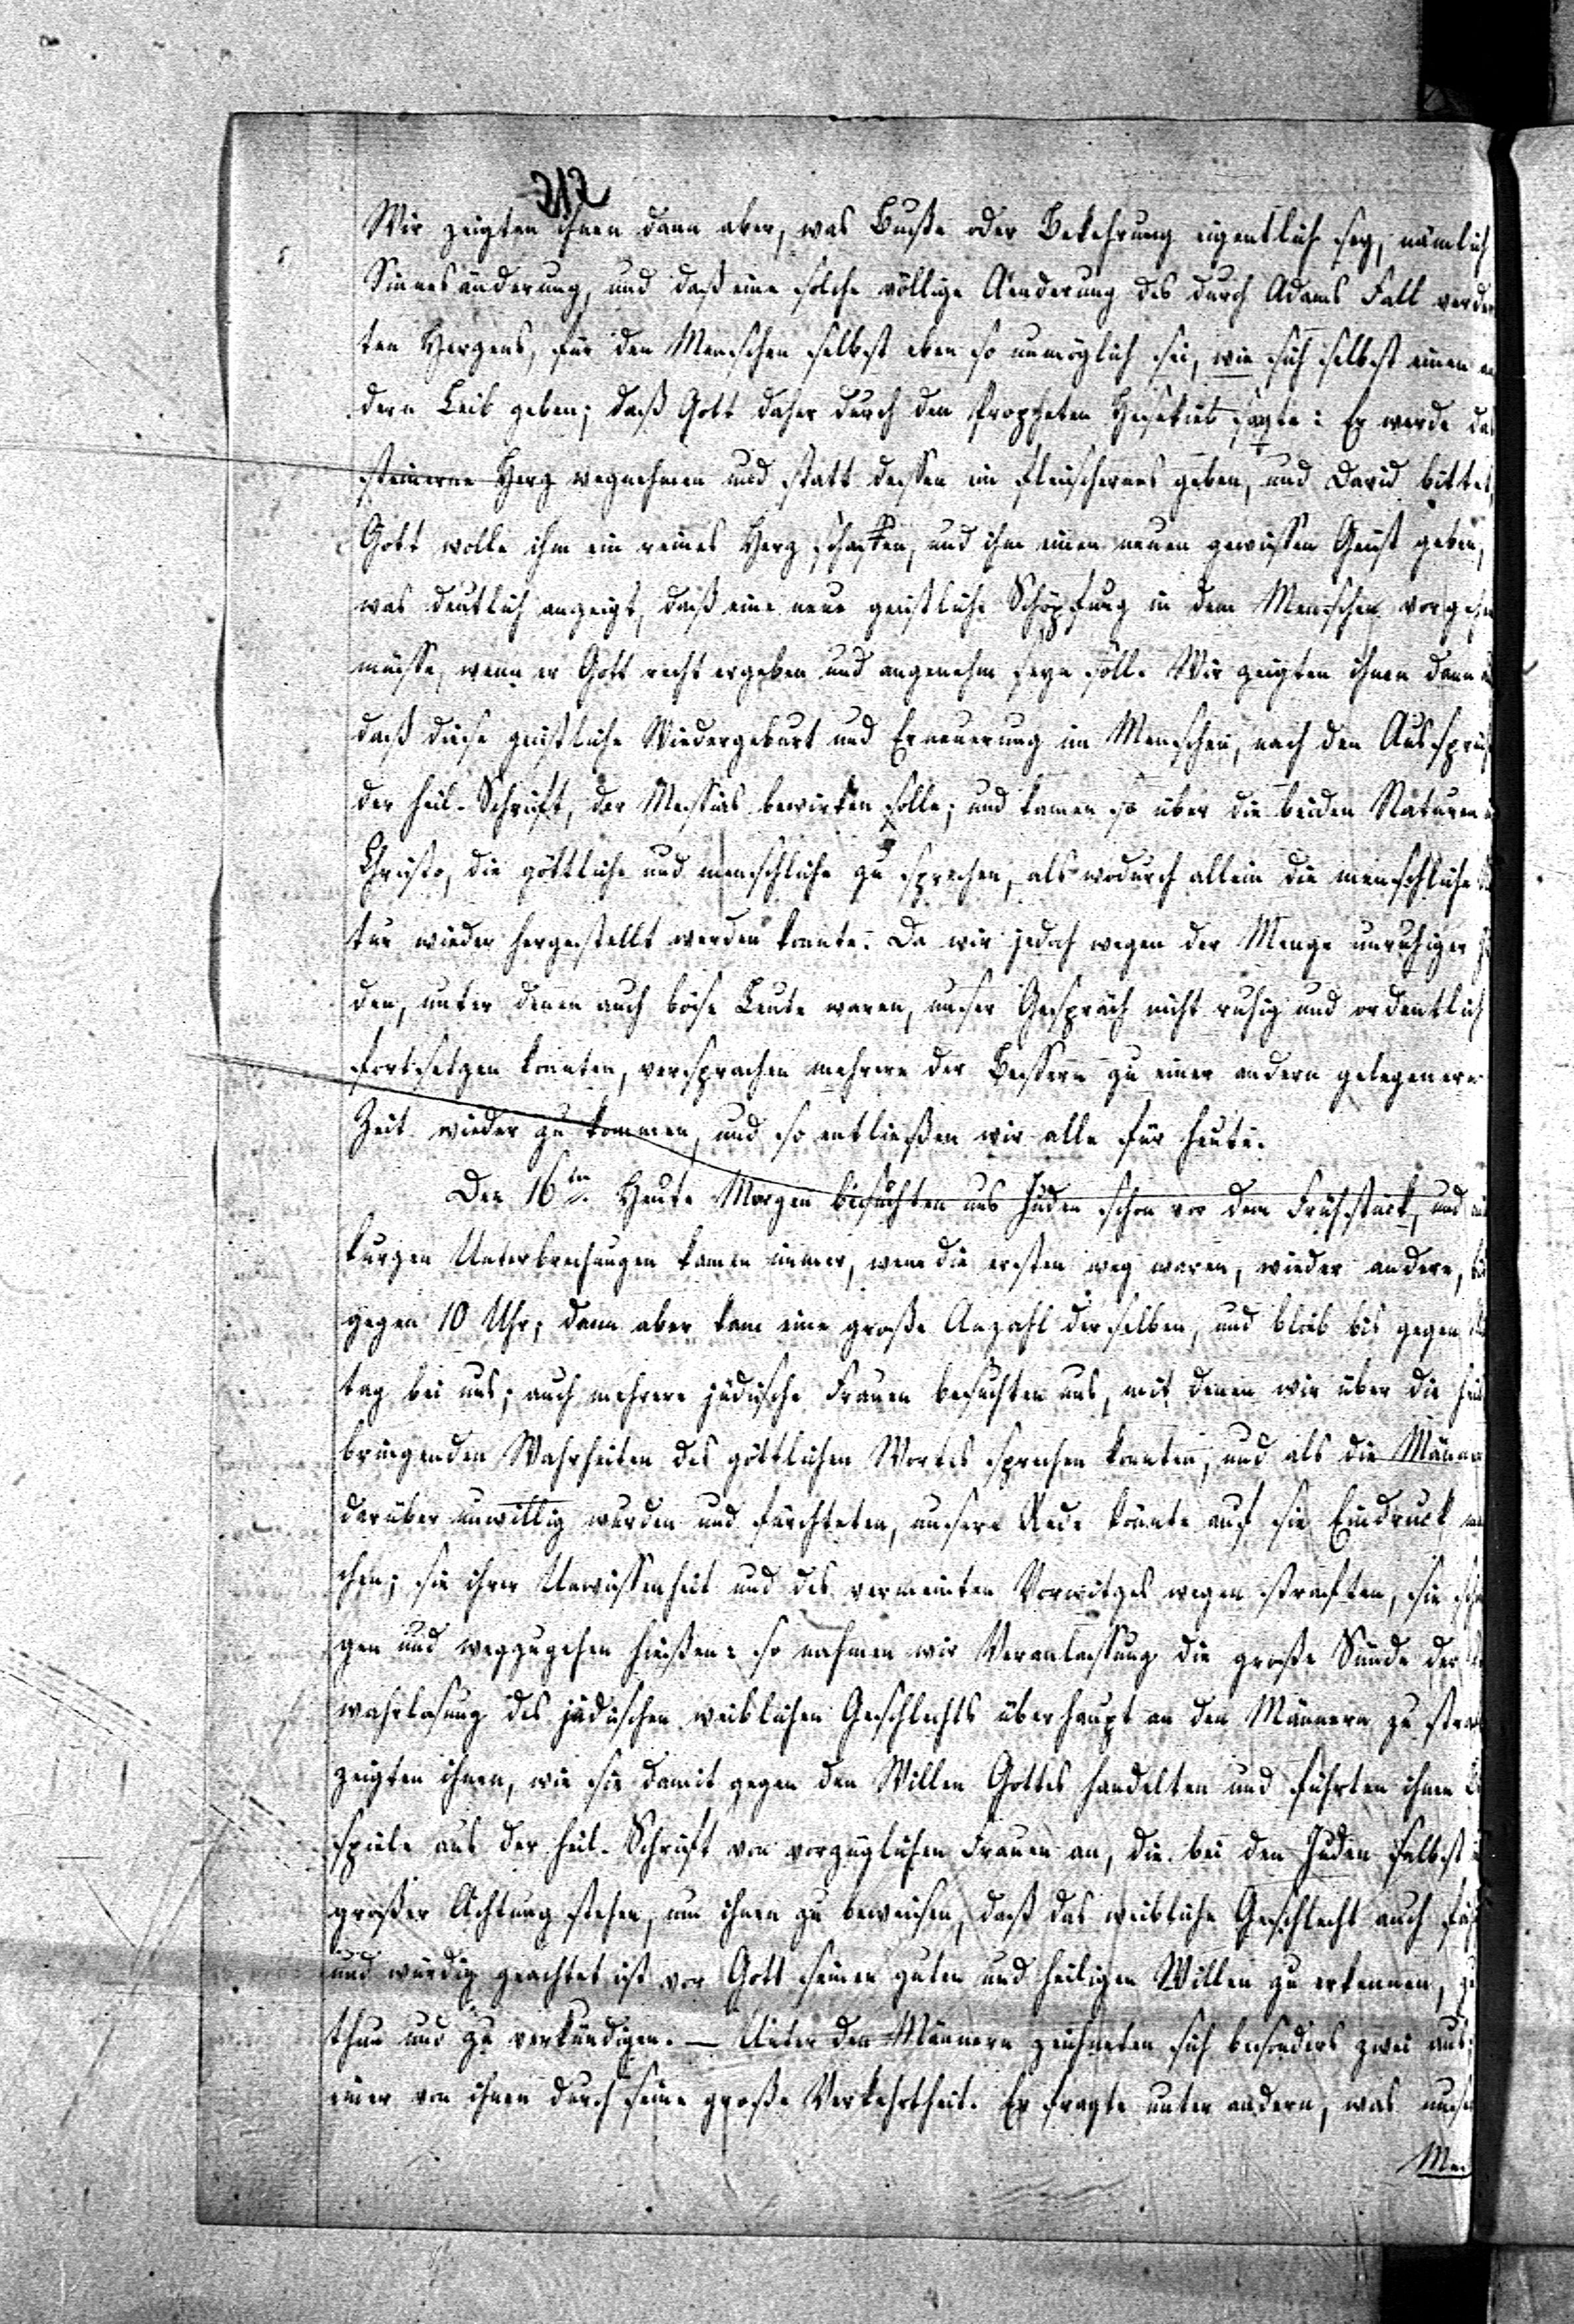 212
Wir zeigten ihnen dann aber, was Buße oder Bekehrung eigentlich sey, nämlich
Sinnesänderung, und daß eine solche völlige Aenderung des durch Adams Fall verder
ten Herzens, für den Menschen selbst eben so unmöglich sei, wie sich selbst einen an
dern Leib geben; daß Gott daher durch den Propheten Hesekiel sagte: Er werde das
steinerne Herz wegnehmen und statt dessen ein fleischernes geben, und David bittet,
Gott wolle ihm ein reines Herz schaffen, und ihm einen neuen gewissen Geist geben,
was deutlich anzeigt, daß eine neue geistliche Schöpfung in dem Menschen vorgehen
müsse, wenn er Gott recht ergeben und angenehm seyn soll. Wir zeigten ihnen dann
daß diese geistliche Wiedergeburt und Erneuerung im Menschen, nach den Aussprüch
der heil. Schrift, der Messias bewirken solle; und kamen so über die beiden Naturen
Christo, die göttliche und menschliche zu sprechen, als wodurch allein die menschliche
tur wieder hergestellt werden konnte. Da wir jedoch wegen der Menge unruhiger
den, unter denen auch böse Leute waren, unser Gespräch nicht ruhig und ordentlich
fortsetzen konnten, versprachen mehrere der Bessern zu einer andern gelegenern
Zeit wieder zu kommen, und so entließen wir alle für heute.
Den 16ten. Heute Morgen besuchten uns Juden schon vor dem Frühstück, und
kurzen Unterbrechungen kamen immer, wenn die ersten weg waren, wieder andere,
gegen 10 Uhr; dann aber kam eine große Anzahl derselben, und blieb bis gegen
tag bei uns; auch mehrere jüdische Frauen besuchten uns, mit denen wir über die heil
bringenden Wahrheiten des göttlichen Wortes sprechen konnten, und als die Männer
darüber unwillig wurden und fürchteten, unsere Rede könnte auf sie Eindruck
chen; sie ihrer Unwissenheit und des vermeinten Vorwitzes wegen straften, sie
gen und wegzugehen hießen: so nahmen wir Veranlassung die große Sünde der
wahrlosung des jüdischen weiblichen Geschlechts überhaupt an den Männern zu straf
zeigten ihnen, wie sie damit gegen den Willen Gottes handelten und führten ihnen
spiele aus der heil. Schrift von vorzüglichen Frauen an, die bei den Juden selbst
großer Achtung stehen, um ihnen zu beweisen, daß das weibliche Geschlecht auch fäh
und würdig geachtet ist vor Gott seinen guten und heiligen Willen zu erkennen, zu
thun und zu verkündigen. — Unter den Männern zeichneten sich besonders zwei aus;
einer von ihnen durch seine große Verkehrtheit. Er fragte unter andern, was unser